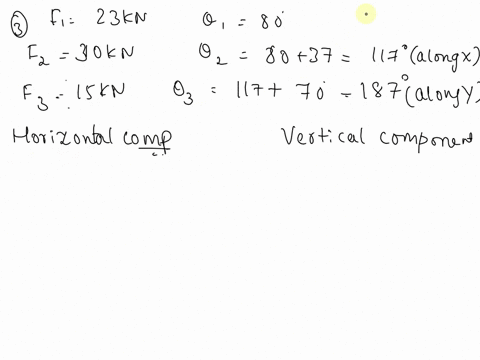 ③ F₁= 23KN θ₁ = 80°
F₂ = 30KN θ₂ = 80+37 = 117° (alongX)
F₃ = 15KN θ₃ = 117+ 70° = 187° (alongY)
Horizontal comp Vertical component